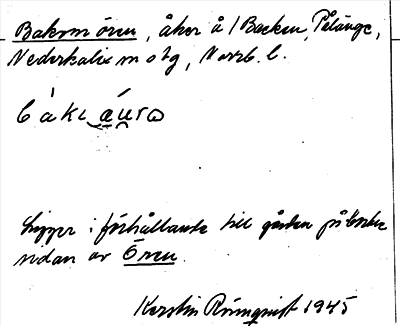 Bakom ören, åker å 1 Backen, Pålänge,
Nederkalix m otg, Norrb. l.
Ligger i förhållande till gården på bortre
sidan av Ören.
Kerstin Rönnqvist 1945